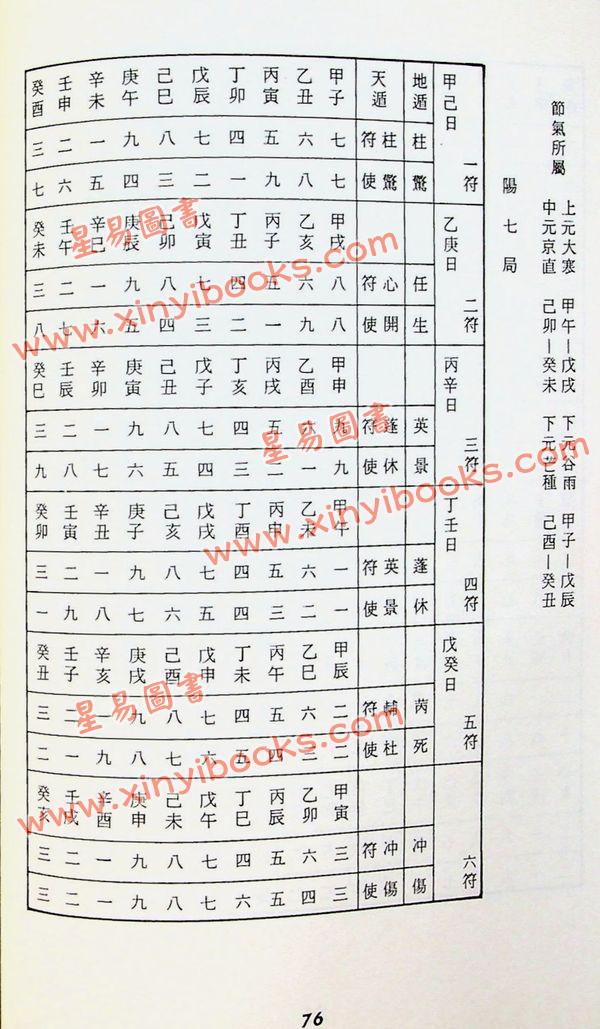 節氣所屬
上元大寒 甲午—戊戌 下元谷雨 甲子—戊辰
中元京直 己卯—癸未 下元芒種 己酉—癸丑
陽七局
甲己日 一符
地遁 柱 驚
天遁 柱符 驚使
甲子 七 七
乙丑 六 八
丙寅 五 九
丁卯 四 一
戊辰 七 二
己巳 八 三
庚午 九 四
辛未 一 五
壬申 二 六
癸酉 三 七
乙庚日 二符
任 生
心符 開使
甲戌 八 八
乙亥 六 九
丙子 五 一
丁丑 四 二
戊寅 七 三
己卯 八 四
庚辰 九 五
辛巳 一 六
壬午 二 七
癸未 三 八
丙辛日 三符
英 景
蓬符 休使
甲申 九 九
乙酉 六 一
丙戌 五 二
丁亥 四 三
戊子 七 四
己丑 八 五
庚寅 九 六
辛卯 一 七
壬辰 二 八
癸巳 三 九
丁壬日 四符
蓬 休
英符 景使
甲午 一 一
乙未 六 二
丙申 五 三
丁酉 四 四
戊戌 七 五
己亥 八 六
庚子 九 七
辛丑 一 八
壬寅 二 九
癸卯 三 一
戊癸日 五符
芮 死
輔符 杜使
甲辰 二 二
乙巳 六 三
丙午 五 四
丁未 四 五
戊申 七 六
己酉 八 七
庚戌 九 八
辛亥 一 九
壬子 二 一
癸丑 三 二
六符
冲 傷
冲符 傷使
甲寅 三 三
乙卯 六 四
丙辰 五 五
丁巳 四 六
戊午 七 七
己未 八 八
庚申 九 九
辛酉 一 一
壬戌 二 二
癸亥 三 三
76
星易圖書
www.xinyibooks.com
星易圖書
www.xinyibooks.com
星易圖書
www.xinyibooks.com